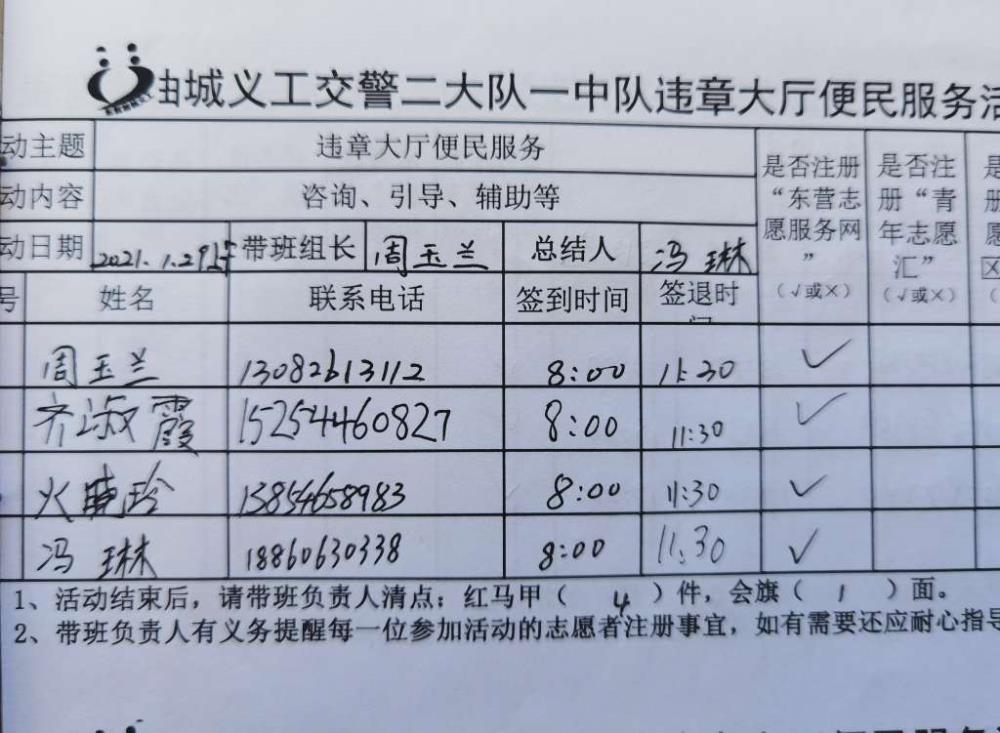 油城义工交警二大队一中队违章大厅便民服务活
动主题 违章大厅便民服务 是否注册“东营志愿服务网” (√或×) 是否注册“青年志愿汇” (√或×)
动内容 咨询、引导、辅助等
动日期 2021.1.29上午 带班组长 周玉兰 总结人 冯琳
号 姓名 联系电话 签到时间 签退时间
周玉兰 13082613112 8:00 11:30 √
齐淑霞 15254460827 8:00 11:30 √
火晓玲 13854658983 8:00 11:30 √
冯琳 18860630338 8:00 11:30 √
1、活动结束后，请带班负责人清点：红马甲（ 4 ）件，会旗（ 1 ）面。
2、带班负责人有义务提醒每一位参加活动的志愿者注册事宜，如有需要还应耐心指导